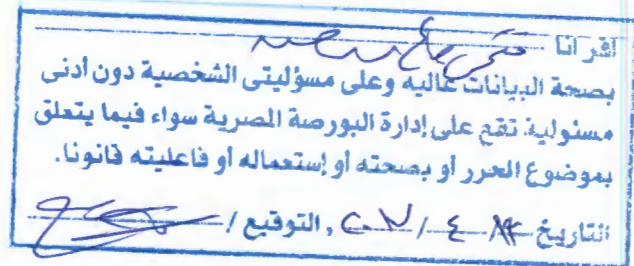 أقر أنا
بصحة البيانات عاليه وعلى مسؤليتى الشخصية دون أدنى
مسئولية تقع على إدارة البورصة المصرية سواء فيما يتعلق
بموضوع المحرر أو بصحته أو إستعماله أو فاعليته قانونا.
التاريخ / ٤ / , التوقيع /